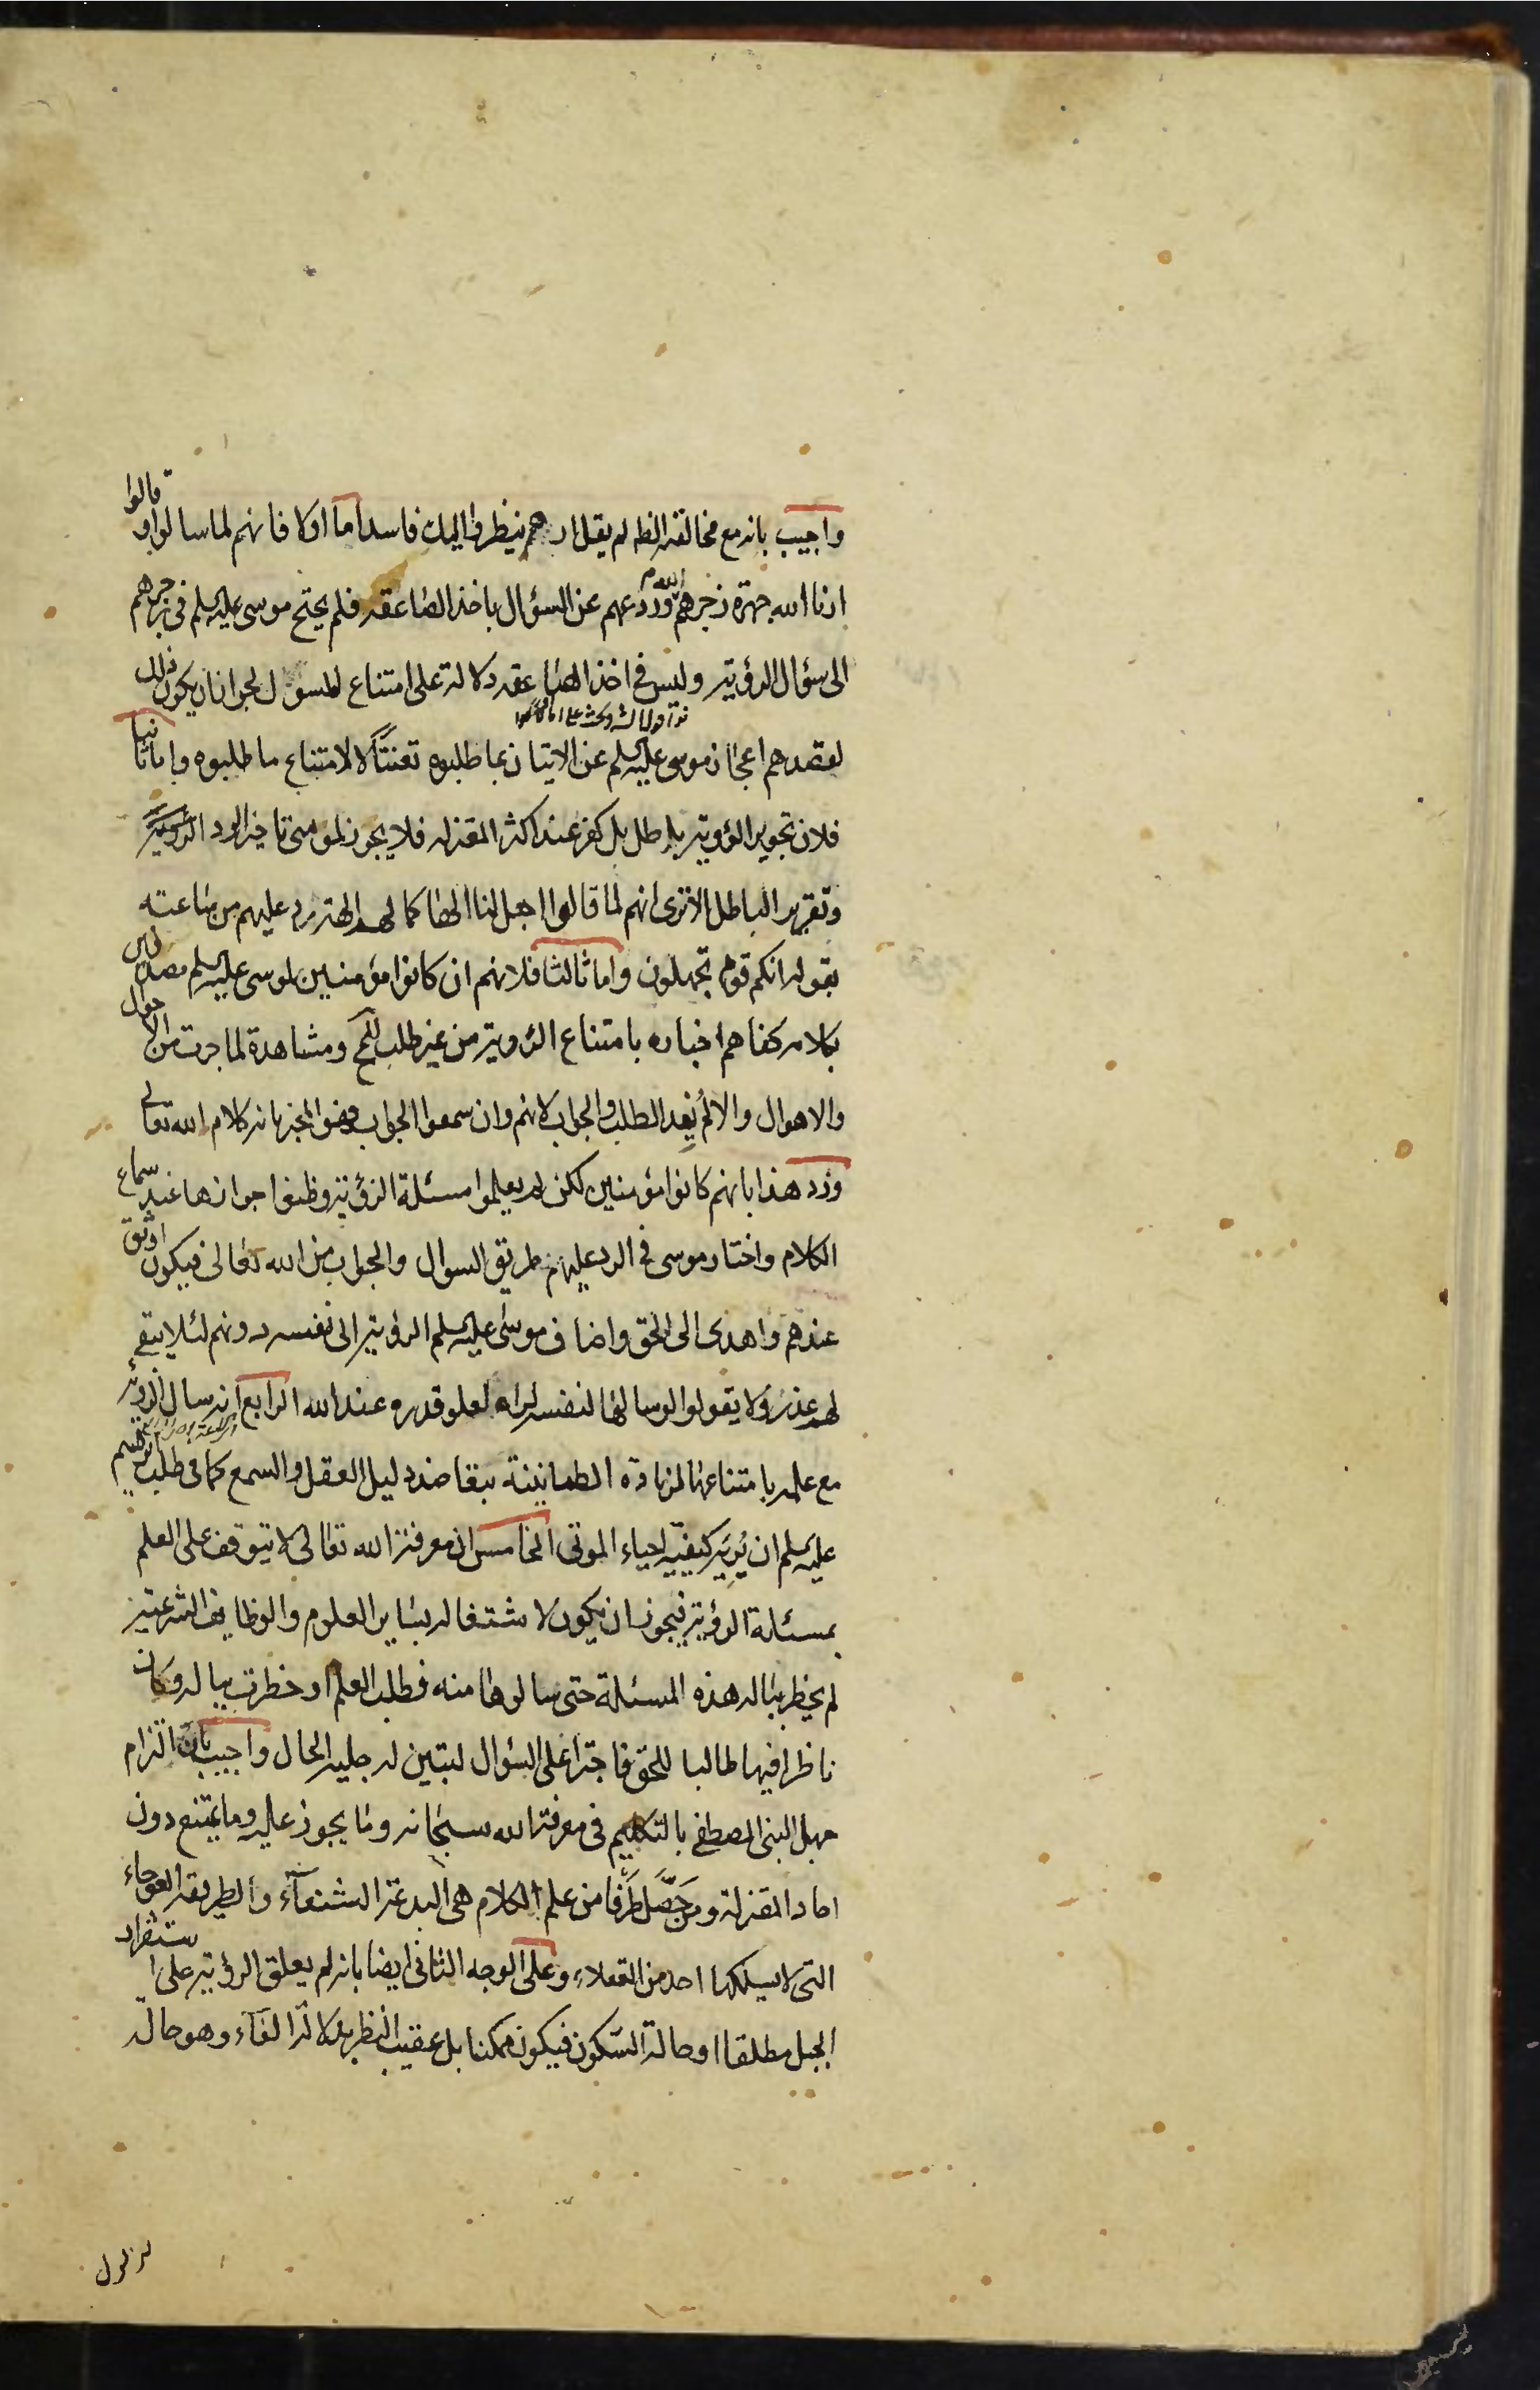 واجيب بانه مع مخالفته الظ لم يقل ارهم ينظروا اليك فاسد اما اولا فانهم لما سالوا وقالوا
ارنا الله جهرة زجرهم الله وردعهم عن السؤال باخذ الصاعقه فلم يحتج موسى عليه السلم في زجرهم
الى سؤال الرؤيته وليس في اخذ الصاعقه دلالة على امتناع المسؤل لجواز ان يكون ذلك
لقصدهم اعجاز موسى عليه السلم عن الاتيان بما طلبوه تعنتا لا لامتناع ما طلبوه واما ثانيا
فلان تجويز الرؤويته باطل بل كفر عند اكثر المعتزله فلا يجوز لموسى تاخير الرد الرؤيته
وتقرير الباطل الا ترى انهم لما قالوا اجعل لنا الها كما لهم الهة رد عليهم من ساعته
بقوله انكم قوم تجهلون واما ثالثا فلانهم ان كانوا مؤمنين لموسى عليه السلم مصدقين
بكلامه كفاهم اخباره بامتناع الرؤويته من غير طلب للمح ومشاهدة لما جرت من الاحوال
والاهوال والا لم يفد الطلب والجواب لانهم وان سمعوا الجواب فهو المخبر بانه كلام الله تعالى
ورد هذا بانهم كانوا مؤمنين لكن لم يعلموا مسئلة الرؤيته وظنوا جوازها عند سماع
الكلام واختار موسى في الرد عليهم طريق السوال والجواب من الله تعالى فيكون اوثق
عندهم واهدى الى الحق واضاف موسى عليه السلم الرؤيته الى نفسه دونهم لئلا يبقى
لهم عذر ولا يقولوا لو سالها لنفسه لراه لعلو قدره عند الله الرابع انه سال الرؤية
مع علمه بامتناعها لزيادة الطمانينة بتعاضد دليل العقل والسمع كما في طلب ابراهيم
عليه السلم ان يريه كيفية احياء الموتى الخامس ان معرفة الله تعالى لا يتوقف على العلم
بمسئلة الرؤيته فيجوز ان يكون لاشتغاله بسايرالعلوم والوظايف الشرعيته
لم يخطر بباله هذه المسئلة حتى سالوها منه فطلب العلم او خطرت بباله وكان
ناظرا فيها طالبا للحق فاجترا على السؤال ليتبين له جلية الحال واجيب بان التزام
جهل النبي المصطفى بالتكليم في معرفة الله سبحانه وما يجوز عليه وما يمتنع دون
احاد المعتزلة ومن حصل طرفا من علم الكلام هي البدعة الشنعآء والطريقه العوجاء
التي لا يسلكها احد من العقلاء وعلى الوجه الثاني ايضا بانه لم يعلق الرؤيته على استقرار
الجبل مطلقا او حالة السكون فيكون ممكنا بل عقيب النظر بدلالة الفآء وهو حالة
تزلزل